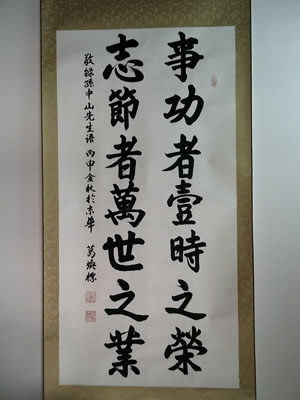 事功者壹時之榮
志節者萬世之業
敬錄孫中山先生語 丙申金秋於京華 葛煥標